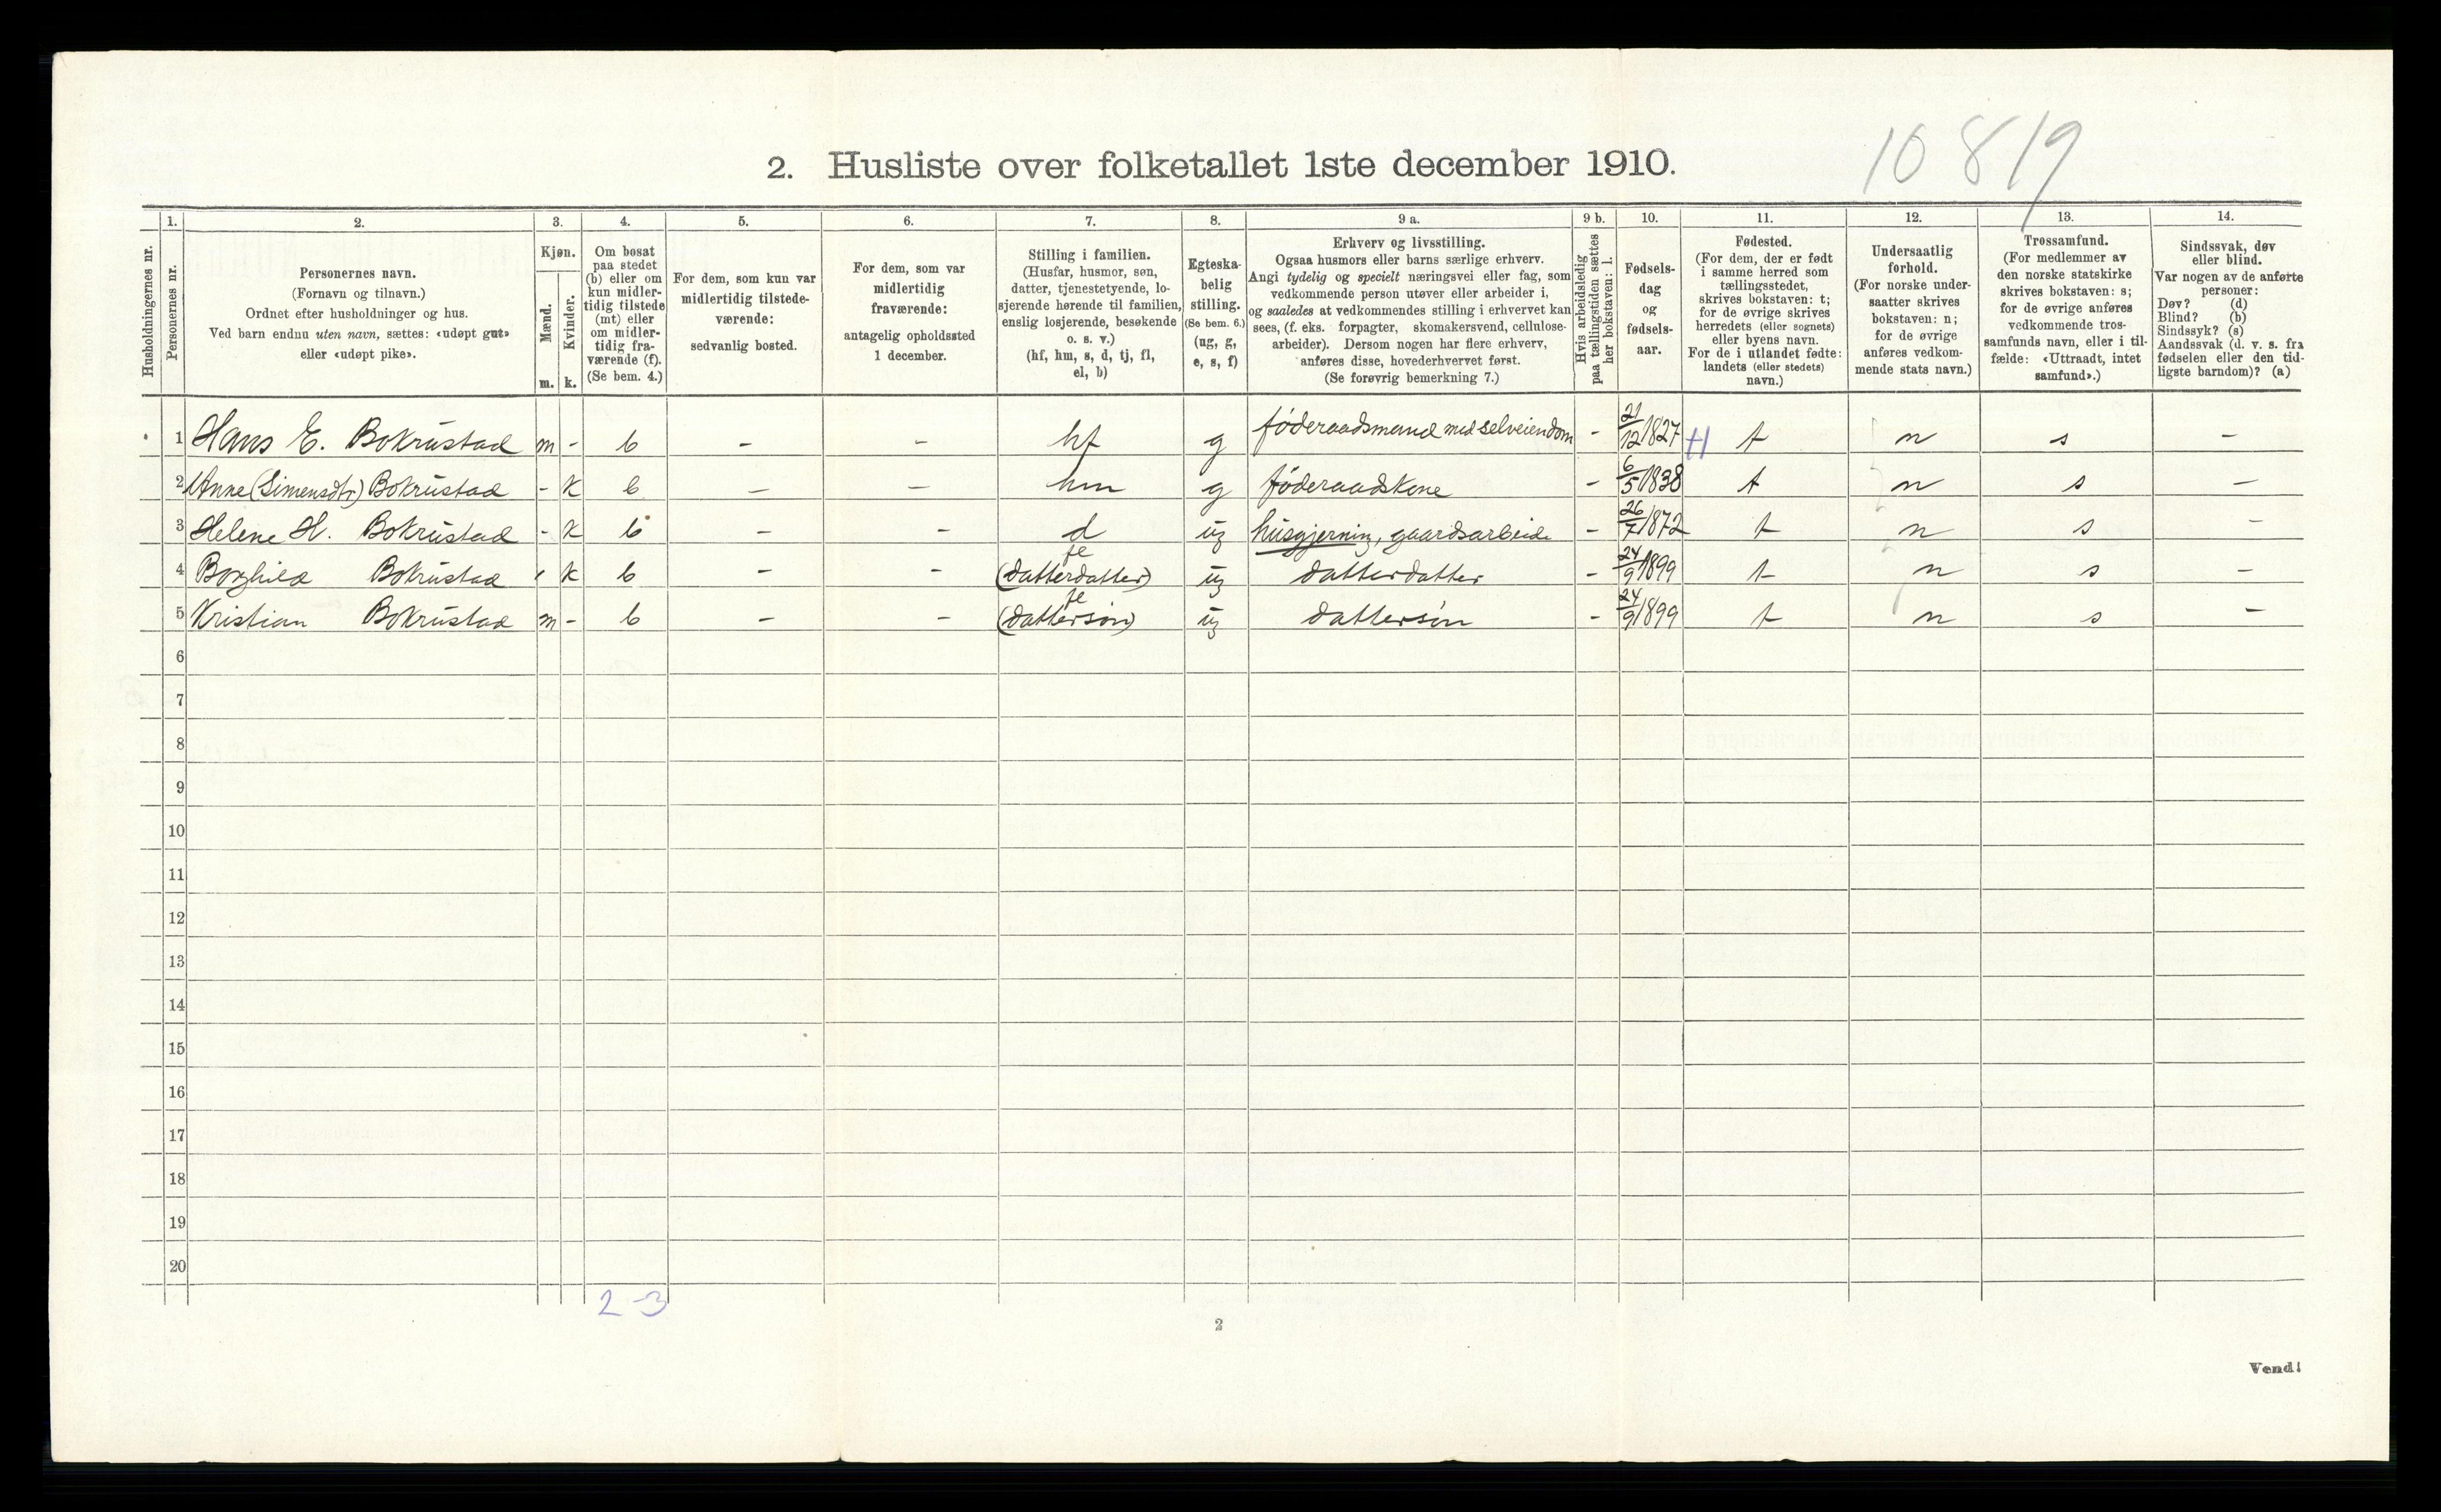 10 819
2. Husliste over folketallet 1ste december 1910.
Husholdningernes nr.
1.
Personernes nr.
2.
Personernes navn.
(Fornavn og tilnavn.)
Ordnet efter husholdninger og hus.
Ved barn endnu uten navn, sættes: «udøpt gut»
eller «udøpt pike».
3.
Kjøn.
Mænd.
m.
Kvinder.
k.
4.
Om bosat
paa stedet
(b) eller om
kun midler-
tidig tilstede
(mt) eller
om midler-
tidig fra-
værende (f).
(Se bem. 4.)
5.
For dem, som kun var
midlertidig tilstede-
værende:
sedvanlig bosted.
6.
For dem, som var
midlertidig
fraværende:
antagelig opholdssted
1 december.
7.
Stilling i familien.
(Husfar, husmor, søn,
datter, tjenestetyende, lo-
sjerende hørende til familien,
enslig losjerende, besøkende
o. s. v.)
(hf, hm, s, d, tj, fl,
el, b)
8.
Egteska-
belig
stilling.
(Se bem. 6.)
(ug, g,
e, s, f)
9 a.
Erhverv og livsstilling.
Ogsaa husmors eller barns særlige erhverv.
Angi tydelig og specielt næringsvei eller fag, som
vedkommende person utøver eller arbeider i,
og saaledes at vedkommendes stilling i erhvervet kan
sees, (f. eks. forpagter, skomakersvend, cellulose-
arbeider). Dersom nogen har flere erhverv,
anføres disse, hovederhvervet først.
(Se forøvrig bemerkning 7.)
9 b.
Hvis arbeidsledig
paa tællingstiden sættes
her bokstaven: l.
10.
Fødsels-
dag
og
fødsels-
aar.
11.
Fødested.
(For dem, der er født
i samme herred som
tællingsstedet,
skrives bokstaven: t;
for de øvrige skrives
herredets (eller sognets)
eller byens navn.
For de i utlandet fødte:
landets (eller stedets)
navn.)
12.
Undersaatlig
forhold.
(For norske under-
saatter skrives
bokstaven: n;
for de øvrige
anføres vedkom-
mende stats navn.)
13.
Trossamfund.
(For medlemmer av
den norske statskirke
skrives bokstaven: s;
for de øvrige anføres
vedkommende tros-
samfunds navn, eller i til-
fælde: «Uttraadt, intet
samfund».)
14.
Sindssvak, døv
eller blind.
Var nogen av de anførte
personer:
Døv? (d)
Blind? (b)
Sindssyk? (s)
Aandssvak (d. v. s. fra
fødselen eller den tid-
ligste barndom)? (a)
1 Hans E. Bokrustad m - b - - hf g føderaadsmand med selveiendom - 21/12 1827 H t n s -
2 Anne (Simensdtr) Bokrustad - k b - - hm g føderaadskone - 6/5 1838 t n s -
3 Helene H. Bokrustad - k b - - d ug husgjerning, gaardsarbeide - 26/7 1872 t n s -
4 Borghild Bokrustad - k b - - fl (datterdatter) ug datterdatter - 24/9 1899 t n s -
5 Kristian Bokrustad m - b - - fl (dattersøn) ug dattersøn - 24/9 1899 t n s -
6
7
8
9
10
11
12
13
14
15
16
17
18
19
20
2-3
2
Vend!